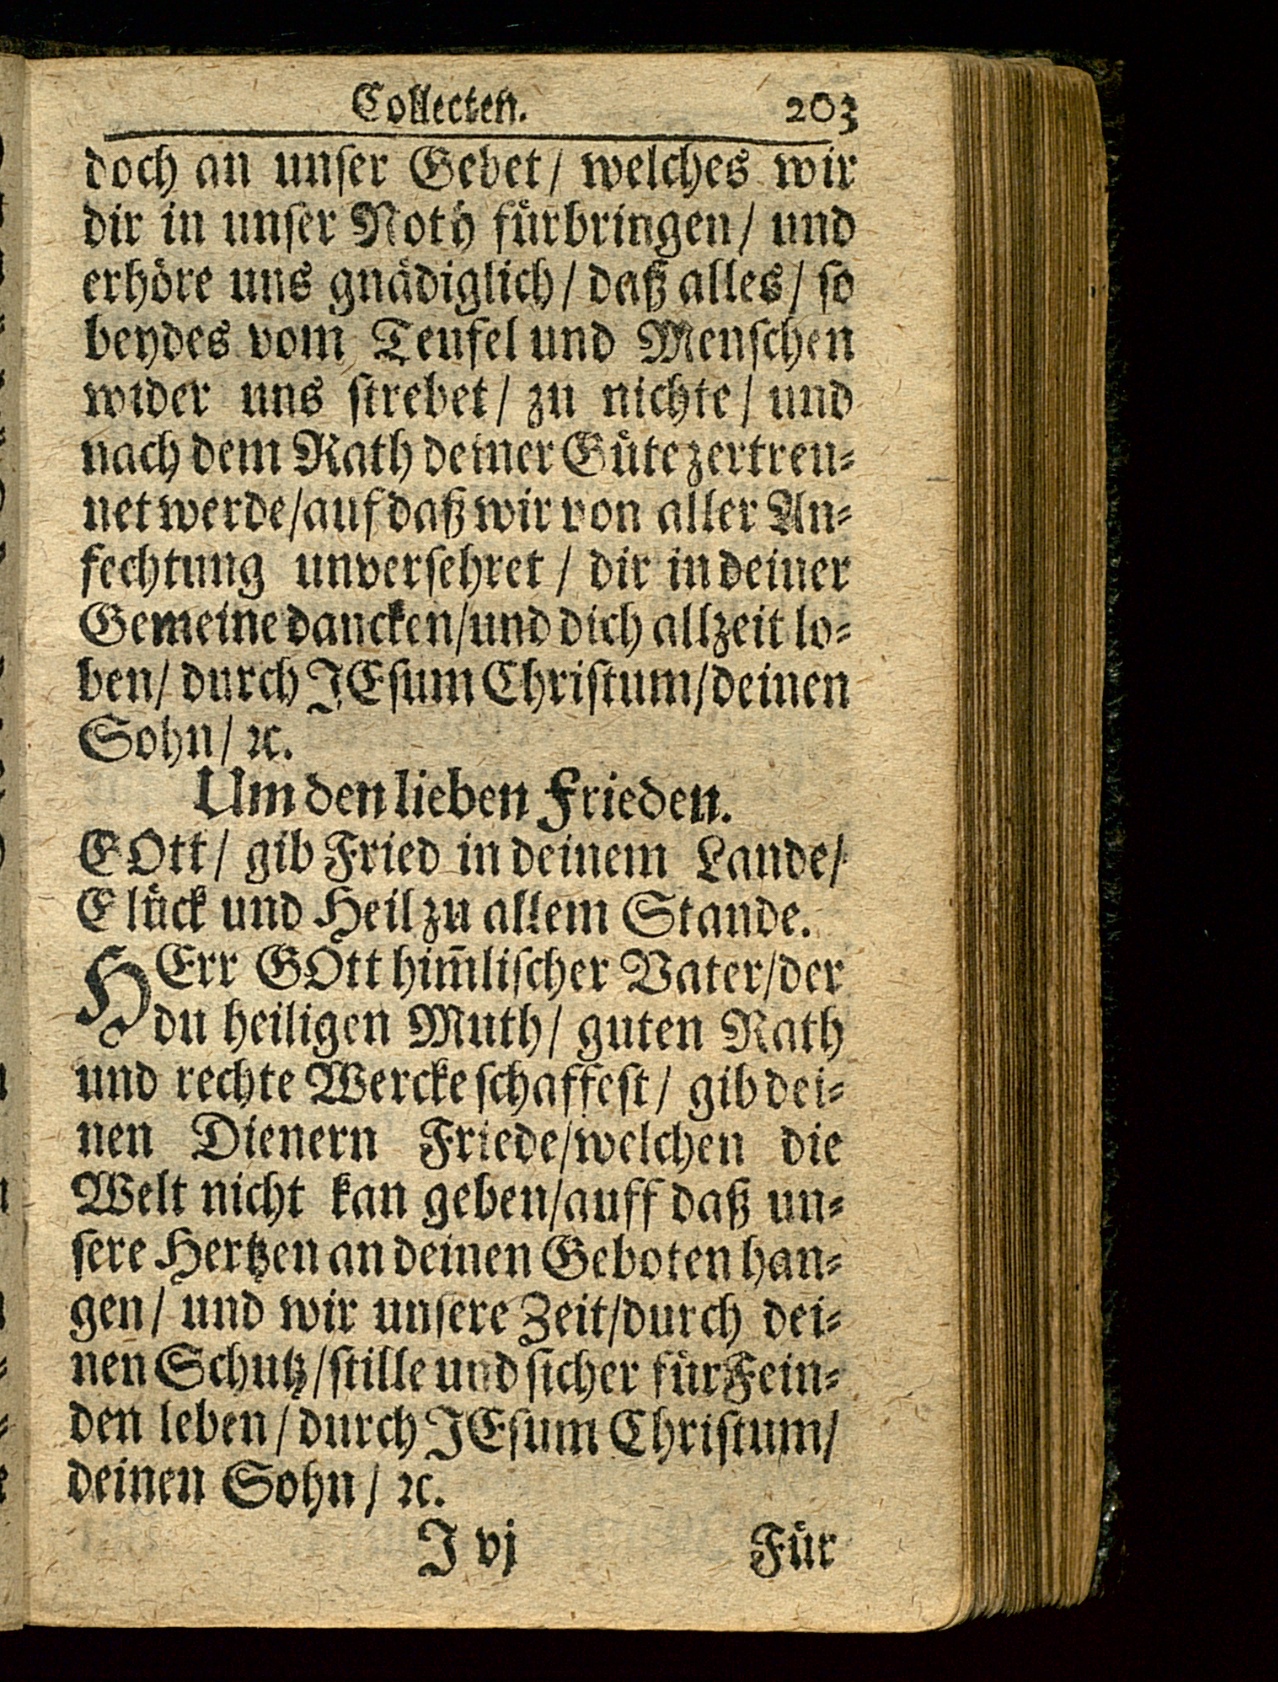 Collecten. 203
doch an unſer Gebet/ welches wir
dir in unſer Noth fuͤrbringen/ und
erhoͤre uns gnaͤdiglich/ daß alles/ ſo
beydes vom Teufel und Menſchen
wider uns ſtrebet/ zu nichte/ und
nach dem Rath deiner Guͤte zertren⸗
net werde/auf daß wir von aller An⸗
fechtung unverſehret / dir in deiner
Gemeine dancken/und dich allzeit lo⸗
ben/ durch JEſum Chriſtum/deinen
Sohn/ ꝛc.
Um den lieben Frieden.
GOtt/ gib Fried in deinem Lande/
Gluͤck und Heil zu allem Stande.
HErr GOtt him̄liſcher Vater/der
du heiligen Muth/ guten Rath
und rechte Wercke ſchaffeſt/ gib dei⸗
nen Dienern Friede/welchen die
Welt nicht kan geben/auff daß un⸗
ſere Hertzen an deinen Geboten han⸗
gen/ und wir unſere Zeit/durch dei⸗
nen Schutz/ſtille und ſicher fuͤr Fein⸗
den leben/durch JEſum Chriſtum/
deinen Sohn/ ꝛc.
J vj Fuͤr